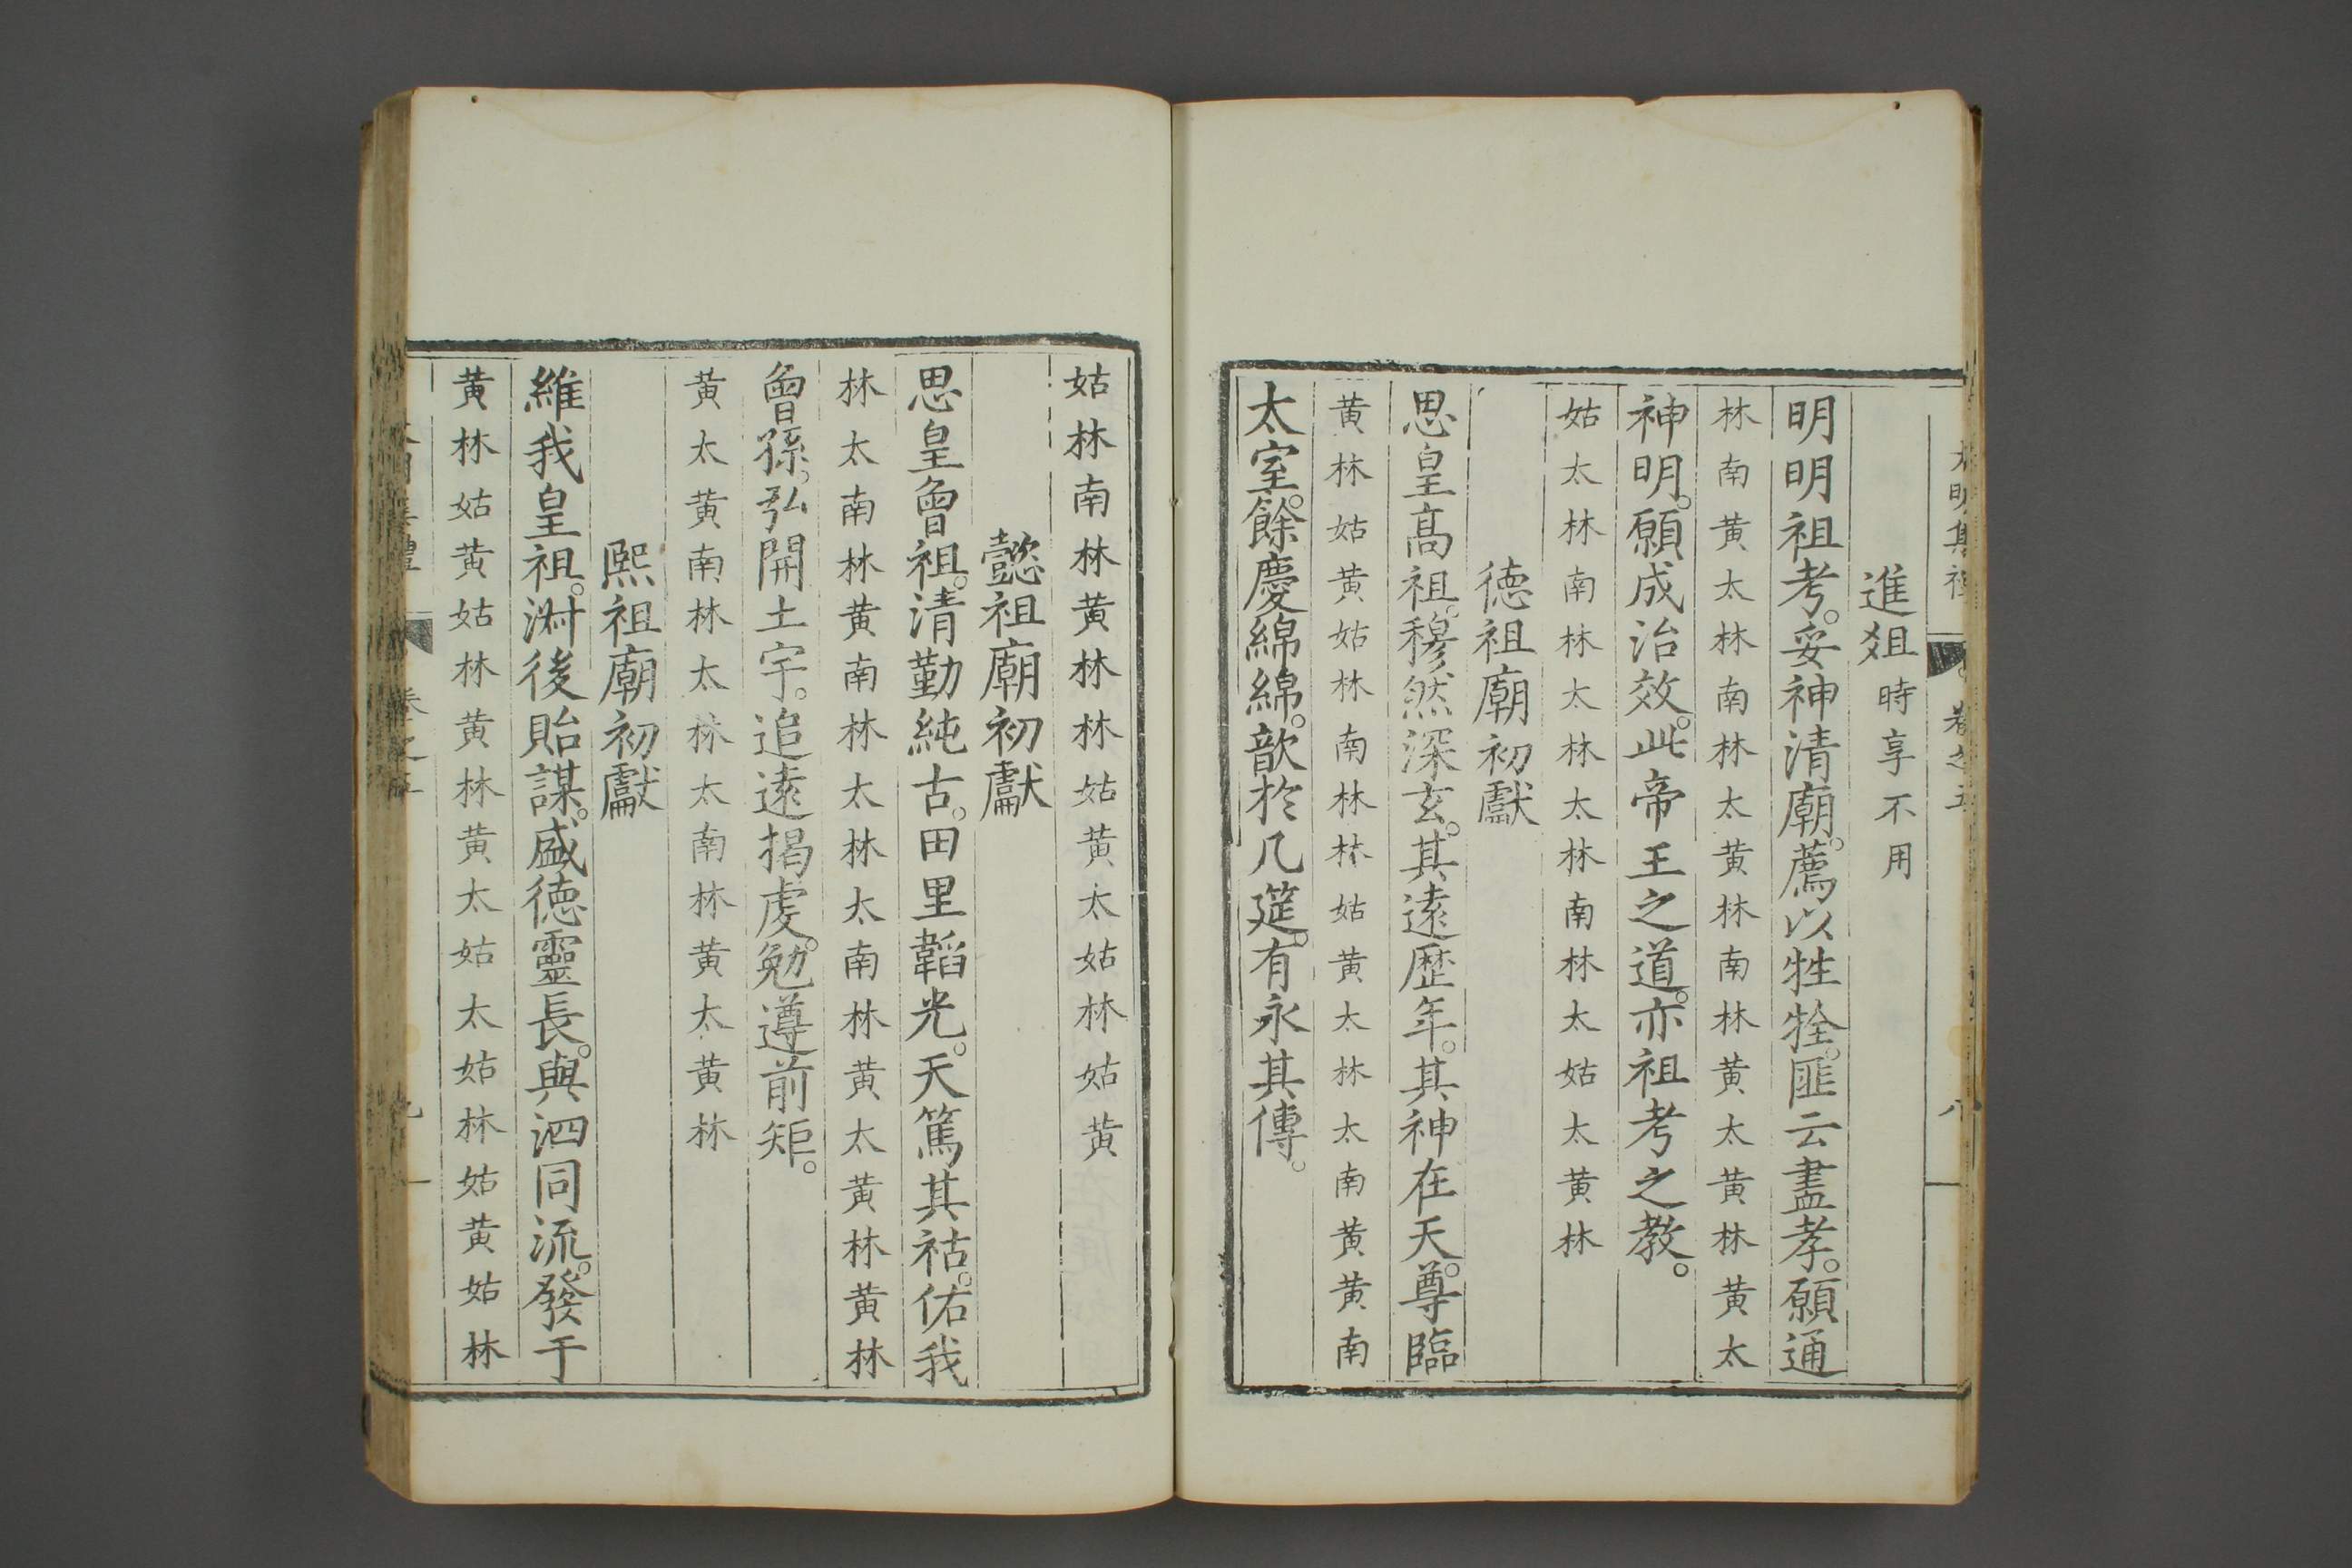 進俎時享不用
明明祖考。妥神清廟。薦以牲牷。匪云盡孝。願通
林南黃太林南林太黃林南林黃太黃林黃太
神明。願成治效。此帝王之道。亦祖考之教。
姑太林南林太林太林南林太姑太黃林
德祖廟初獻
思皇高祖。穆然深玄。其遠歷年。其神在天。尊臨
黃林姑黃姑林南林林姑黃太林太南黃黃南
太室。餘慶綿綿。歆於几筵。有永其傳。
姑林南林黃林林姑黃太姑林姑黃
懿祖廟初獻
思皇曾祖。清勤純古。田里韜光。天篤其祜。佑我
林太南林黃南林太林太南林黃太黃林黃林
曾孫。弘開土宇。追遠揭虔。勉遵前矩。
黃太黃南林太林太南林黃太黃林
熙祖廟初獻
維我皇祖。淑後貽謀。盛德靈長。與泗同流。發于
黃林姑黃姑林黃林黃太姑太姑林姑黃姑林
卷之五